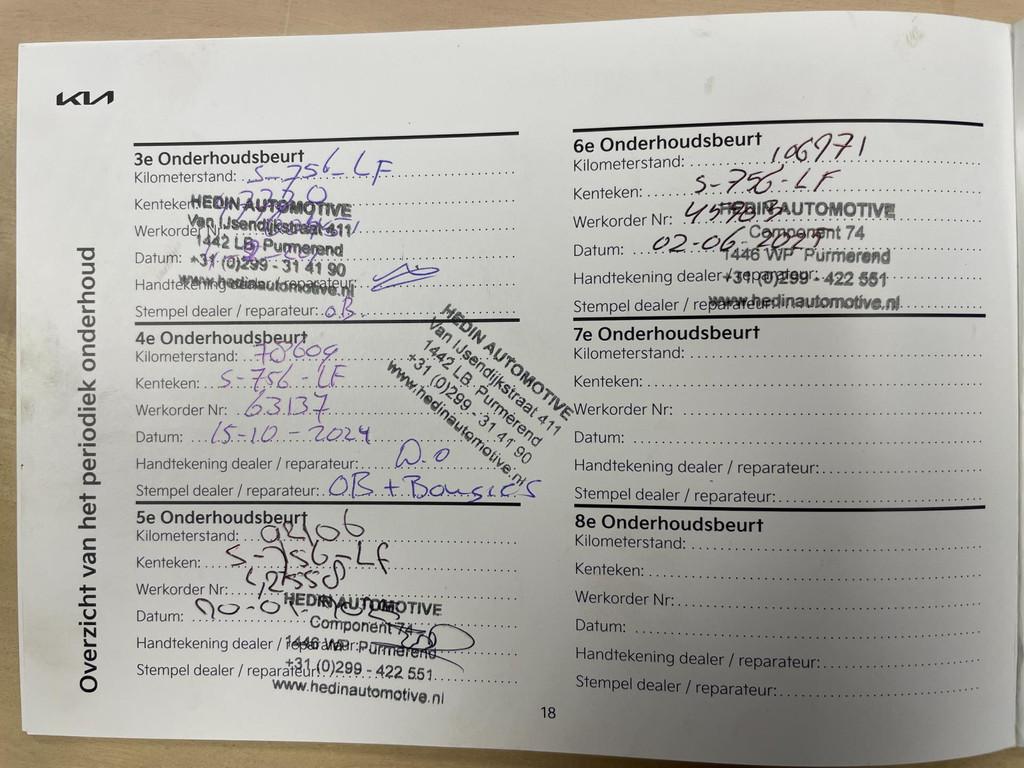 KIA
Overzicht van het periodiek onderhoud
3e Onderhoudsbeurt
Kilometerstand: S-756-LF
Kenteken:
Werkorder Nr:
Datum:
Handtekening dealer / reparateur:
Stempel dealer / reparateur: OB
HEDIN AUTOMOTIVE
Van IJsendijkstraat 411
1442 LB Purmerend
+31 (0)299 - 31 41 90
www.hedinautomotive.nl
4e Onderhoudsbeurt
Kilometerstand: 78609
Kenteken: S-756-LF
Werkorder Nr: 63137
Datum: 15-10-2024
Handtekening dealer / reparateur:
Stempel dealer / reparateur: OB + Bougies
HEDIN AUTOMOTIVE
Van IJsendijkstraat 411
1442 LB Purmerend
+31 (0)299 - 31 41 90
www.hedinautomotive.nl
5e Onderhoudsbeurt
Kilometerstand:
Kenteken: S-756-LF
Werkorder Nr: 42558
Datum:
Handtekening dealer / reparateur:
Stempel dealer / reparateur:
HEDIN AUTOMOTIVE
Component 74
1446 WP Purmerend
+31 (0)299 - 422 551
www.hedinautomotive.nl
6e Onderhoudsbeurt
Kilometerstand: 106971
Kenteken: S-756-LF
Werkorder Nr:
Datum: 02-06-2025
Handtekening dealer / reparateur:
Stempel dealer / reparateur:
HEDIN AUTOMOTIVE
Component 74
1446 WP Purmerend
+31 (0)299 - 422 551
www.hedinautomotive.nl
7e Onderhoudsbeurt
Kilometerstand:
Kenteken:
Werkorder Nr:
Datum:
Handtekening dealer / reparateur:
Stempel dealer / reparateur:
8e Onderhoudsbeurt
Kilometerstand:
Kenteken:
Werkorder Nr:
Datum:
Handtekening dealer / reparateur:
Stempel dealer / reparateur:
18